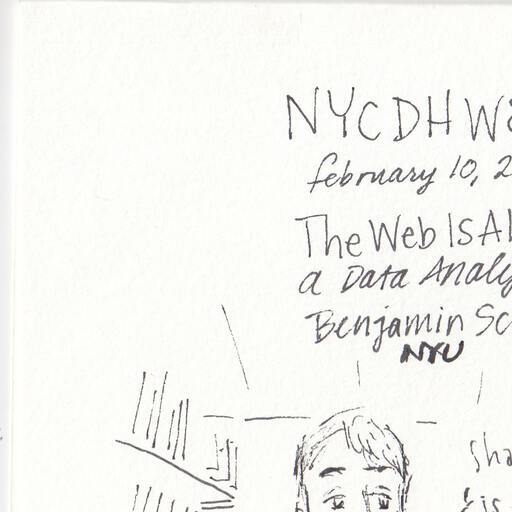 NYCDH We
february 10, 2
The Web Is Al
a Data Analy
Benjamin Sc
NYU
sha
is